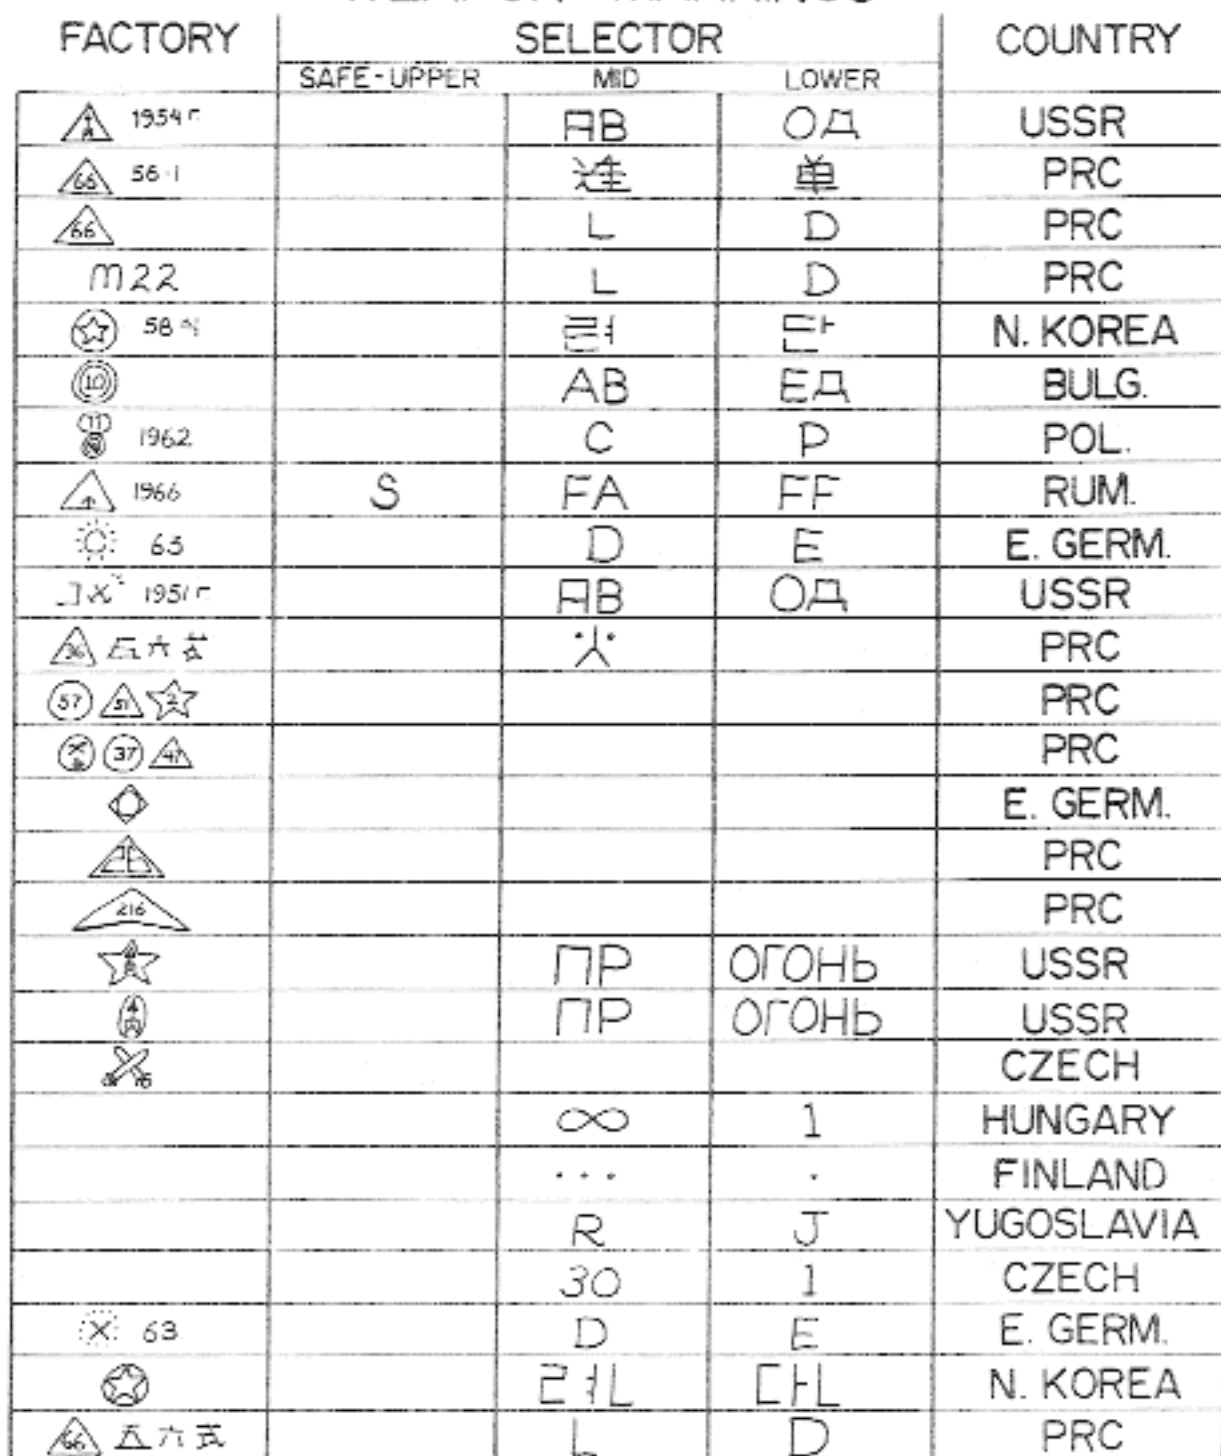 FACTORY SELECTOR COUNTRY
SAFE-UPPER MID LOWER
1954г АВ ОД USSR
66 56-1 连 单 PRC
66 L D PRC
M22 L D PRC
58식 려 단 N. KOREA
10 АВ ЕД BULG.
11 1962 C P POL.
1966 S FA FF RUM.
65 D E E. GERM.
1951г АВ ОД USSR
36 五六 PRC
57 51 2 PRC
37 47 PRC
E. GERM.
26 PRC
216 PRC
ПР ОГОНЬ USSR
ПР ОГОНЬ USSR
CZECH
∞ 1 HUNGARY
... . FINLAND
R J YUGOSLAVIA
30 1 CZECH
63 D E E. GERM.
련 단 N. KOREA
66 五六式 L D PRC